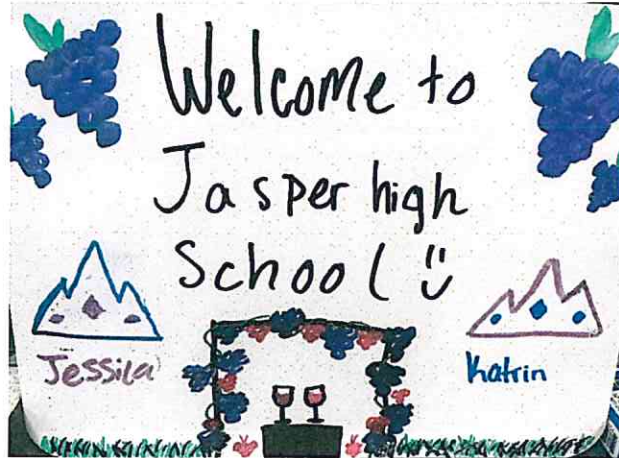 Welcome to
Jasper high
School
Jessica
Katrin